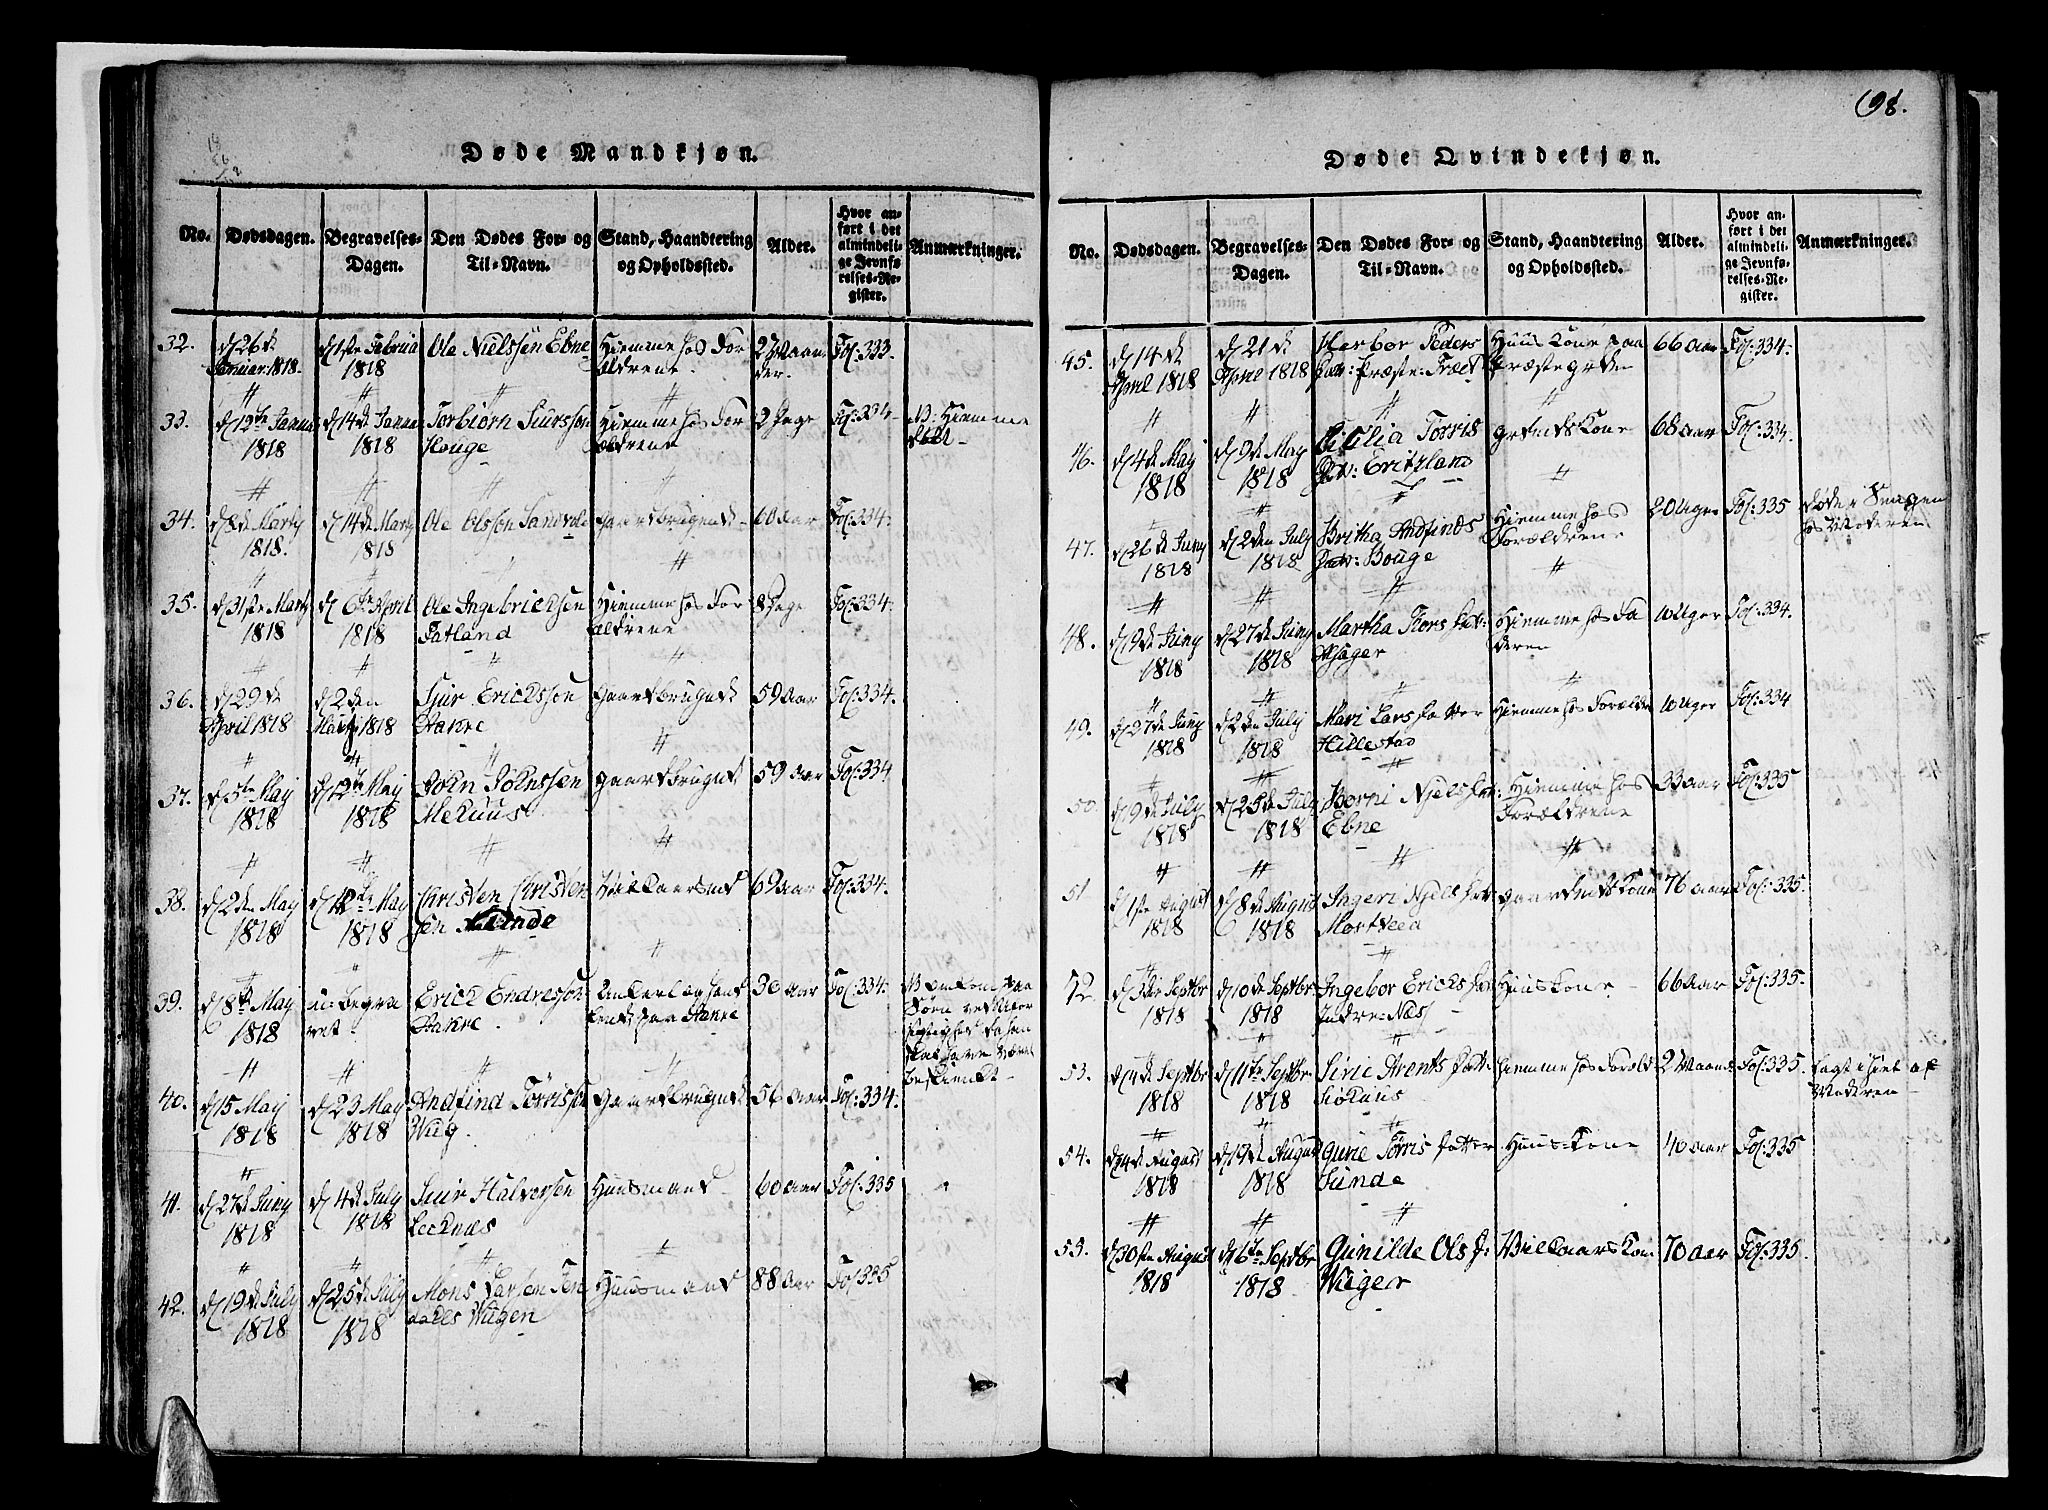 198.
Døde Mandkjøn.
No. Dødsdagen. Begravelses-Dagen. Den Dødes For- og Til-Navn. Stand, Haandtering og Opholdssted. Alder. Hvor anført i det almindelige Jevnførelses-Register. Anmærkninger.
32. d 26de Januar 1818. d 1ste Februa 1818 Ole Nielssøn Ebne Hiemme hos Forældrene. 2 Maaneder. Fol: 333.
33. 1818 d 14de Janua 1818 Torbiørn Siurssøn Houge Hiemme hos Forældrene 2 Dage Fol: 334. NB. Hiemme døbt
34. d 8de Marty 1818. d 14de Marty 1818 Ole Olssøn Gaardbrugende 60 Aar Fol: 334.
35. d 31ste Marty 1818 d 6te April 1818 Ole Ingebricktsen Fatland Hiemme hos Forældrene 8 Dage Fol: 334.
36. d 29de April 1818 d 2den 1818 Siur Erickssøn Stakre Gaardbrugende 59 Aar Fol: 334.
37. d 5te May 1818 d 12te May 1818 John Johnssen Mehuus Gaardbrugende 59 Aar Fol: 334
38. d 2den May 1818 d 12te May 1818 Christen Christensen Sunde Vilkaarsmand 69 Aar Fol: 334.
39. d 8de May 1818 ei: begravet Erick Endressøn Stakre. paa Stakre 30 Aar Fol: 334. omkom paa Søen
40. d 15 May 1818 d 23 May 1818 Andfind Tørrissøn Wiig. Gaardbrugende 56 Aar Fol: 334.
41. d 27de Juny 1818 d 4de July 1818 Siur Halversen Lecknæs Huusmand 60 Aar Fol: 335
42. d 19de July 1818 d 25de July 1818 Mons Larsen Wiigen Huusmand 88 Aar Fol 335
Døde Qvindekjøn.
No. Dødsdagen. Begravelses-Dagen. Den Dødes For- og Til-Navn. Stand, Haandtering og Opholdssted. Alder. Hvor anført i det almindelige Jevnførelses-Register. Anmærkninger.
45. d 14de April 1818 d 21de April 1818 Herbor Peders Dat: Præste: Træet Huuskone paa Præstegrden 66 Aar Fol: 334.
46. d 4de May 1818 d 9de May 1818 Cicilia Torris Dat: Eritzland Grdmdskone 68 Aar Fol: 334.
47. d 26de Juny 1818 d 2den July 1818 Britha Andfinds Dat: Houge Hiemme hos Forældrene 20 Uger Fol: 335 døde i Sengen hos Moderen
48. d 19de Juny 1818 d 27de Juny 1818 Martha Tors Dat: Hiemme hos Faderen 10 Uger Fol: 334.
49. d 27de Juny 1818 d 2den July 1818 Mari Lars Datter Hillestad Hiemme hos Forældre 10 Uger Fol: 334
50. d 19de July 1818 d 25de July 1818 Borni Njels Dat: Ebne Hiemme hos Forældrene 33 Aar Fol: 335
51 d 1ste August 1818 d 8de August 1818 Ingeri Njels Dat Mortveed Gaardmdskone 76 Aar Fol: 335.
52. Septbr 1818 d 10de Septbr 1818 Ingebor Ericks Dat Indre-Næs Huuskone 66 Aar Fol: 335.
53. d 4de Septbr 1818 d 11te Septbr 1818 Sirie Arents Datt Hiemme hos Foræld 2 Maaned Fol: 335. lagt ihiel af Moderen
54. August 1818 d 19de August 1818 Gurie Tørris Datter Sunde Huus-Kone 40 Aar Fol: 335
55. d 30ste August 1818 d 6te Septbr 1818 Gunilde Ols D: Wiiger Vilkaarskone 70 Aar Fol: 335.